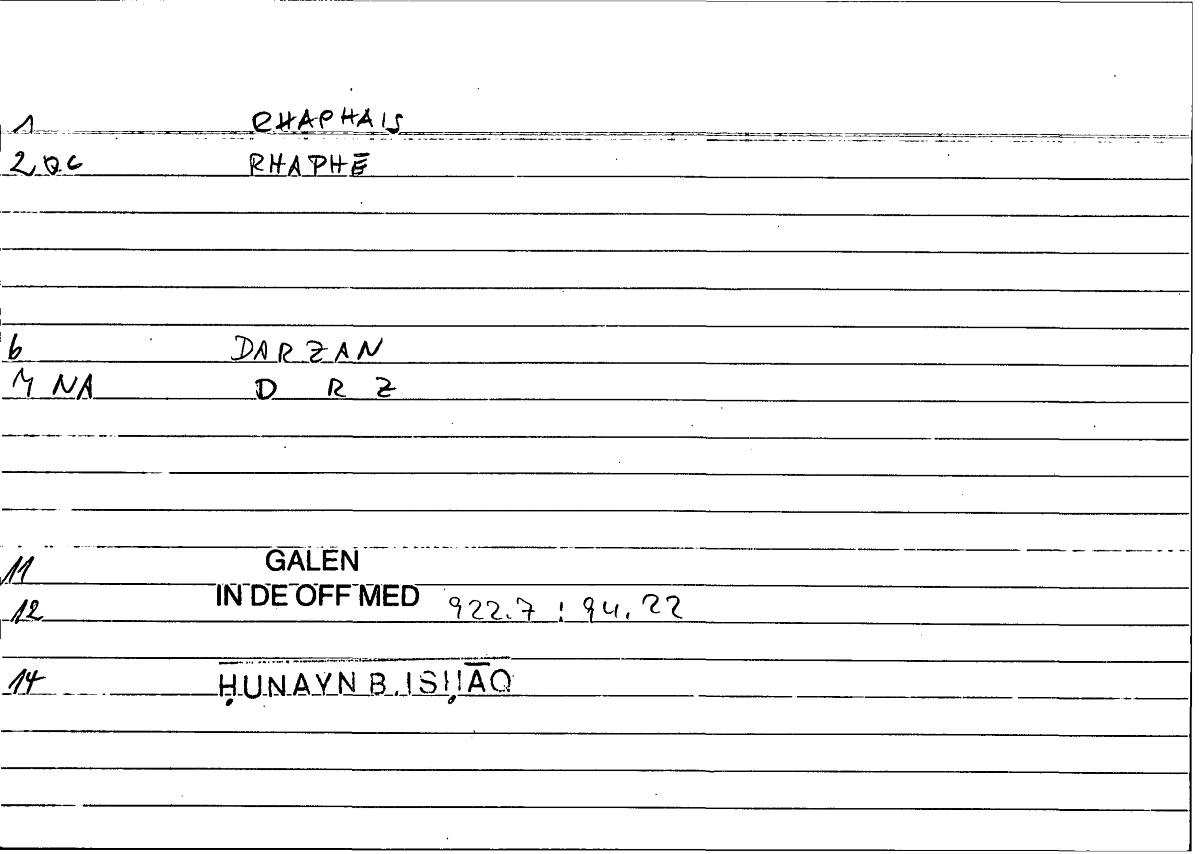 1 RHAPHAIS
2,0C RHAPHĒ
6 DARZAN
7 NA D R Z
11 GALEN
12 IN DE OFF MED 922.7 : 94.22
14 ḤUNAYN B. ISḤĀQ